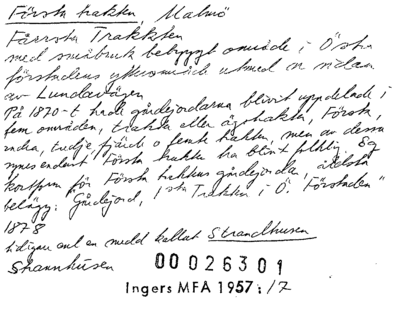 Första hakka, Malmö
Fårrsta Trakkten
med småbruk bebyggt område i Östra
förstadens ytterområde utmed n sidan
av Lundavägen
På 1870-t hade gårdejordarna blivit uppdelade i
fem områden, trakta eller ägotrakta, Första,
andra, tredje, fjärde o femte hakka men av dessa
synes endast Första hakka ha blivit folklig. Eg
kortform för Första hakkus gårdejorda, återstå
belägg: Gårdejord, 1sta Trakta i Ö. Förstaden"
1878
tidigare enl en medd kallat Strandhusen
Strannhusen
00026301
Ingers MFA 1957:/7